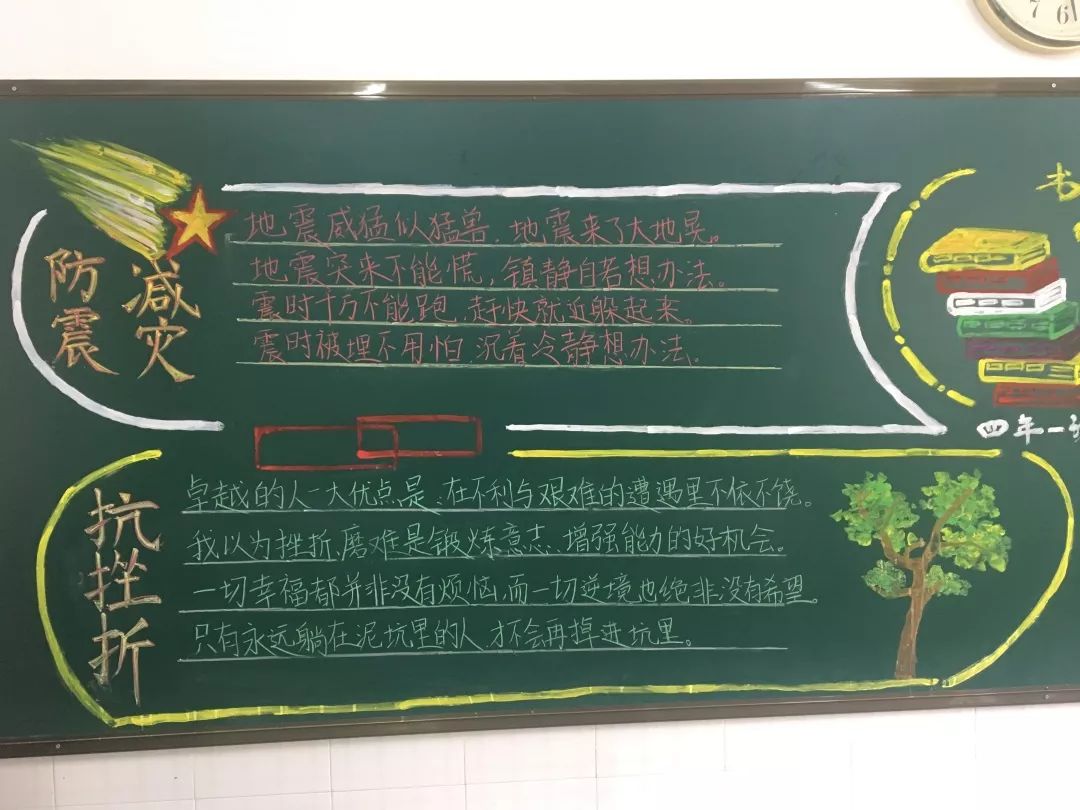 7 6
书
防震
减灾
地震威猛似猛兽,地震来了大地晃。
地震突来不能慌,镇静自若想办法。
震时千万不能跑,赶快就近躲起来。
震时被埋不用怕,沉着冷静想办法。
四年一班
抗挫折
卓越的人一大优点是,在不利与艰难的遭遇里不依不饶。
我以为挫折、磨难是锻炼意志、增强能力的好机会。
一切幸福都并非没有烦恼,而一切逆境也绝非没有希望。
只有永远躺在泥坑里的人,才不会再掉进坑里。